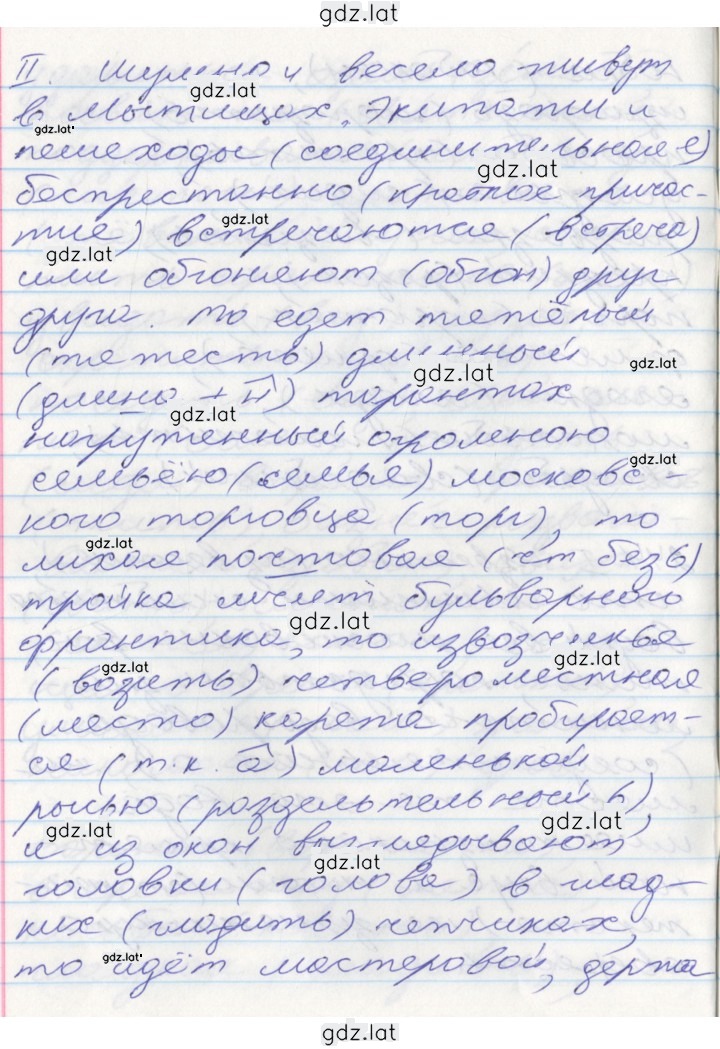 gdz.lat
II. Шумно и весело живут
gdz.lat
в Мытищах. Экипажи и
gdz.lat
пешеходы (соединительная е)
gdz.lat
беспрестанно (краткое причас-
gdz.lat
тие) встречаются (встреча)
gdz.lat
или обгоняют (обгон) друг
друга. То едет тяжёлый
(тяжесть) длинный
gdz.lat
gdz.lat
(длина + н) тарантас
gdz.lat
нагруженный огромною
gdz.lat
семьёю (семья) московс-
кого торговца (торг), то
gdz.lat
лихая почтовая (чт без ь)
тройка мчит бульварного
gdz.lat
франтика, то извозчичья
gdz.lat
gdz.lat
(возить) четвероместная
(место) карета пробирает-
ся (т.к. а) маленькой
рысью (разделительный ь),
gdz.lat
gdz.lat
и из окон выглядывают
gdz.lat
головки (голова) в глад-
ких (гладить) чепчиках,
gdz.lat
то идёт мастеровой, держа
gdz.lat